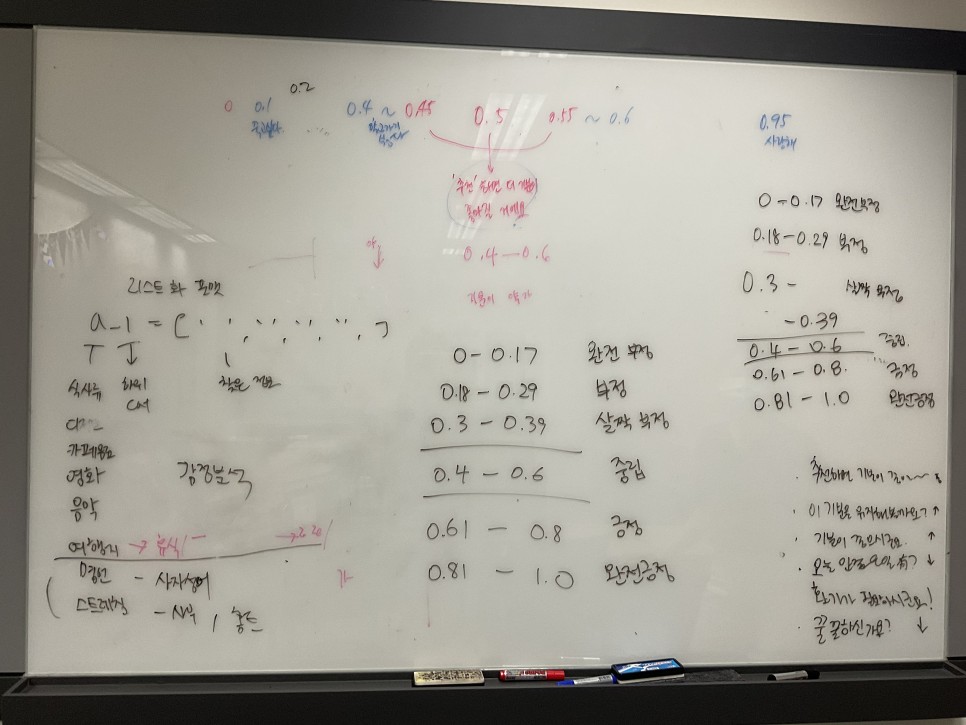 0.2
0 0.1 0.4 ~ 0.45 0.5 0.55 ~ 0.6 0.95
죽고싶다 사랑해
'추천' 하면 더
좋아질 거예요
0.4 — 0.6
0 — 0.17 완전부정
0.18 — 0.29 부정
0.3 - 살짝 부정
- 0.39
0.4 — 0.6 중립
0.61 — 0.8 긍정
0.81 — 1.0 완전긍정
리스트화 포맷
a-1 = [ ' ', ' ', ' ', ]
식사류 하위
카페음료
영화 감정분석
음악
여행지 → 휴식/
명언 - 사자성어
스트레칭
가
0 — 0.17 완전 부정
0.18 — 0.29 부정
0.3 — 0.39 살짝 부정
0.4 — 0.6 중립
0.61 — 0.8 긍정
0.81 — 1.0 완전긍정
· 추천하면 기분이
· 이 기분을 유지해볼까요? ↑
· 기분이 좋으시군요 ↑
· 오늘 ↓
필요하시군요!
· 꿀꿀하신가요? ↓